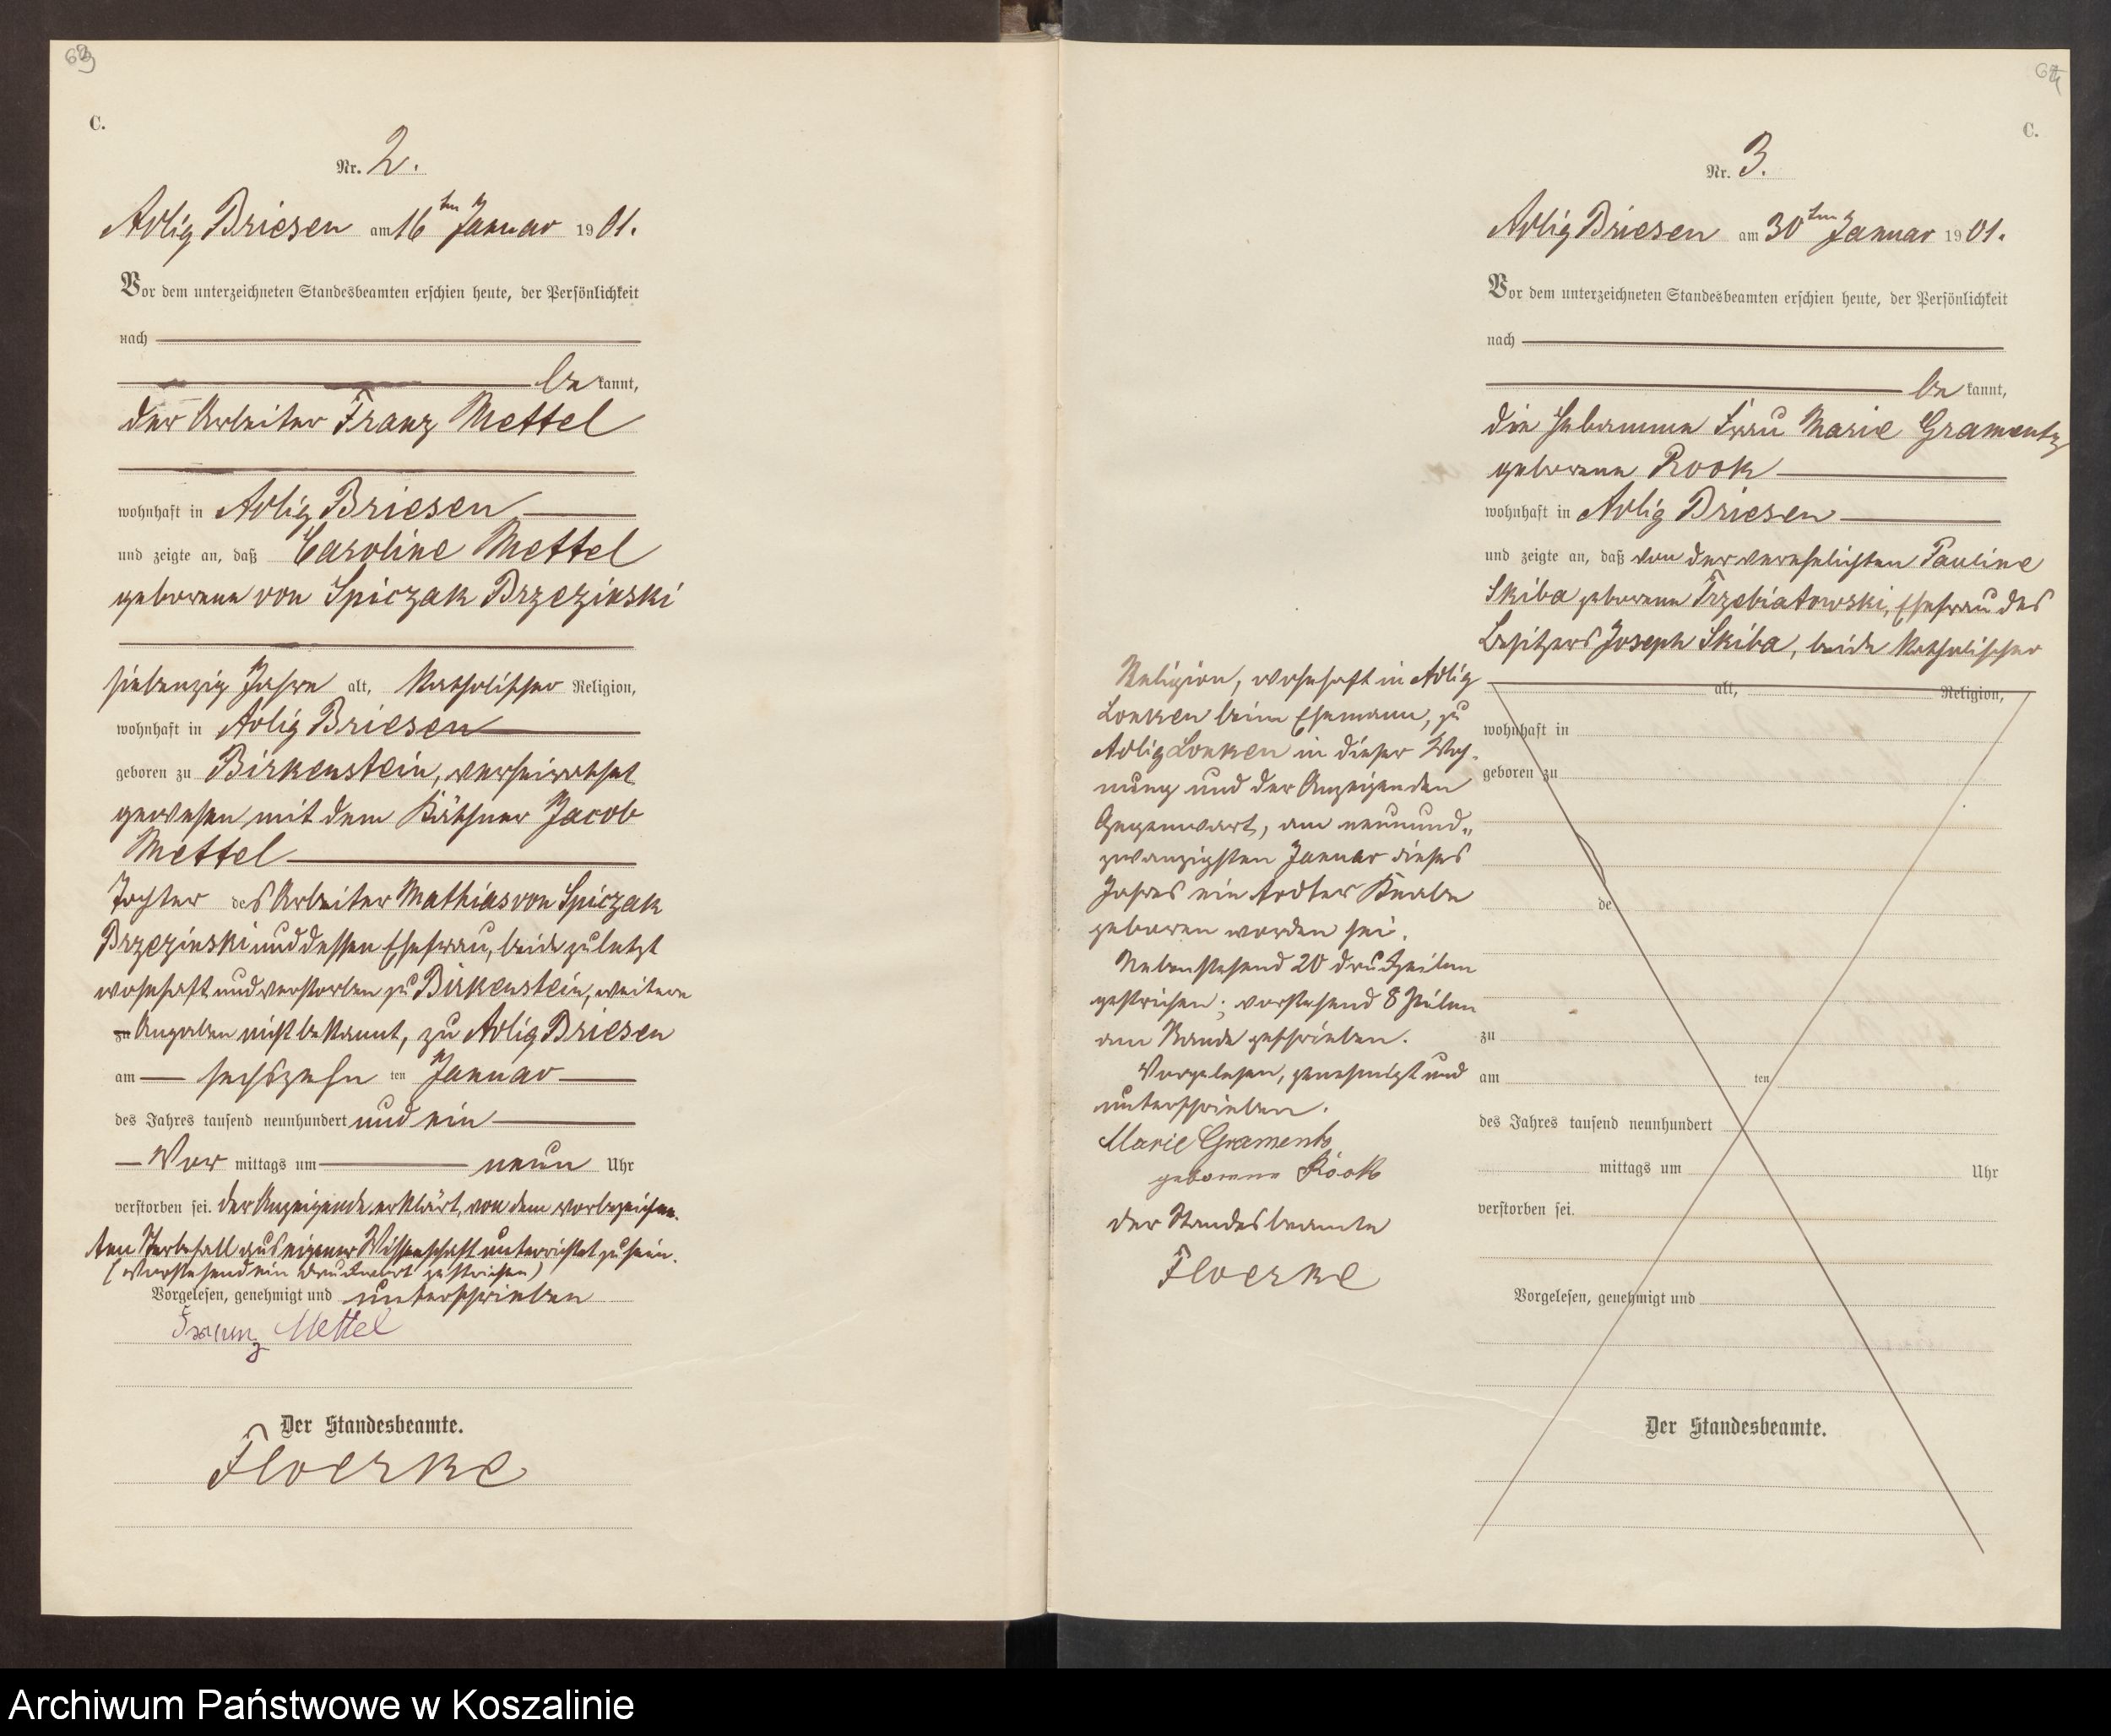 63
C.
Nr. 2.
Adlig Briesen am 16ten Januar 1901.
Vor dem unterzeichneten Standesbeamten erschien heute, der Persönlichkeit
nach
be kannt,
der Arbeiter Franz Mettel
wohnhaft in Adlig Briesen
und zeigte an, daß Caroline Mettel
geborene von Spiczak Brzezinski
siebenzig Jahre alt, katholischer Religion,
wohnhaft in Adlig Briesen
geboren zu Birkenstein, verheirathet
gewesen mit dem Käthner Jacob
Mettel
Tochter des Arbeiter Mathias von Spiczak
Brzezinski und dessen Ehefrau, beide zuletzt
wohnhaft und verstorben zu Birkenstein, weitere
zu Angaben nicht bekannt, zu Adlig Briesen
am sechszehn ten Januar
des Jahres tausend neunhundert und ein
Vor mittags um neun Uhr
verstorben sei. Der Anzeigende erklärt, von dem vorbezeichne-
ten Sterbefall aus eigener Wissenschaft unterrichtet zu sein.
(Vorstehend ein Druckwort gestrichen)
Vorgelesen, genehmigt und unterschrieben
Franz Mettel
Der Standesbeamte.
Floerke
64
C.
Nr. 3.
Adlig Briesen am 30ten Januar 1901.
Vor dem unterzeichneten Standesbeamten erschien heute, der Persönlichkeit
nach
be kannt,
die Hebamme Frau Marie Gramentz
geborene Rook
wohnhaft in Adlig Briesen
und zeigte an, daß von der verehelichten Pauline
Skiba geborene Trzebiatowski, Ehefrau des
Besitzers Joseph Skiba, beide katholischer
Religion, wohnhaft in Adlig
Lonken beim Ehemann, zu
Adlig Lonken in dieser Woh-
nung und der Anzeigenden
Gegenwart, am neunund-
zwanzigsten Januar dieses
Jahres ein todter Knabe
geboren worden sei.
Nebenstehend 20 Druckzeilen
gestrichen; vorstehend 8 Zeilen
am Rande geschrieben.
Vorgelesen, genehmigt und
unterschrieben.
Marie Gramentz
geborene Rook
Der Standesbeamte
Floerke
alt, Religion,
wohnhaft in
geboren zu
de
zu
am ten
des Jahres tausend neunhundert
mittags um Uhr
verstorben sei.
Vorgelesen, genehmigt und
Der Standesbeamte.
Archiwum Państwowe w Koszalinie